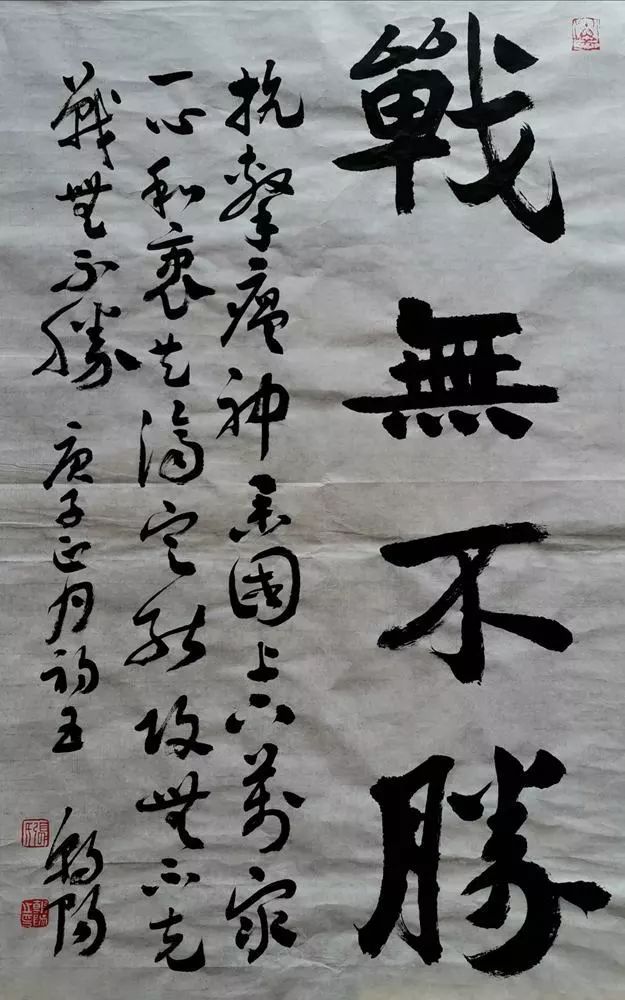 戰無不勝
抗擊瘟神舉國上下萬衆
一心和衷共濟定能攻無不克
戰無不勝 庚子正月初五 陽